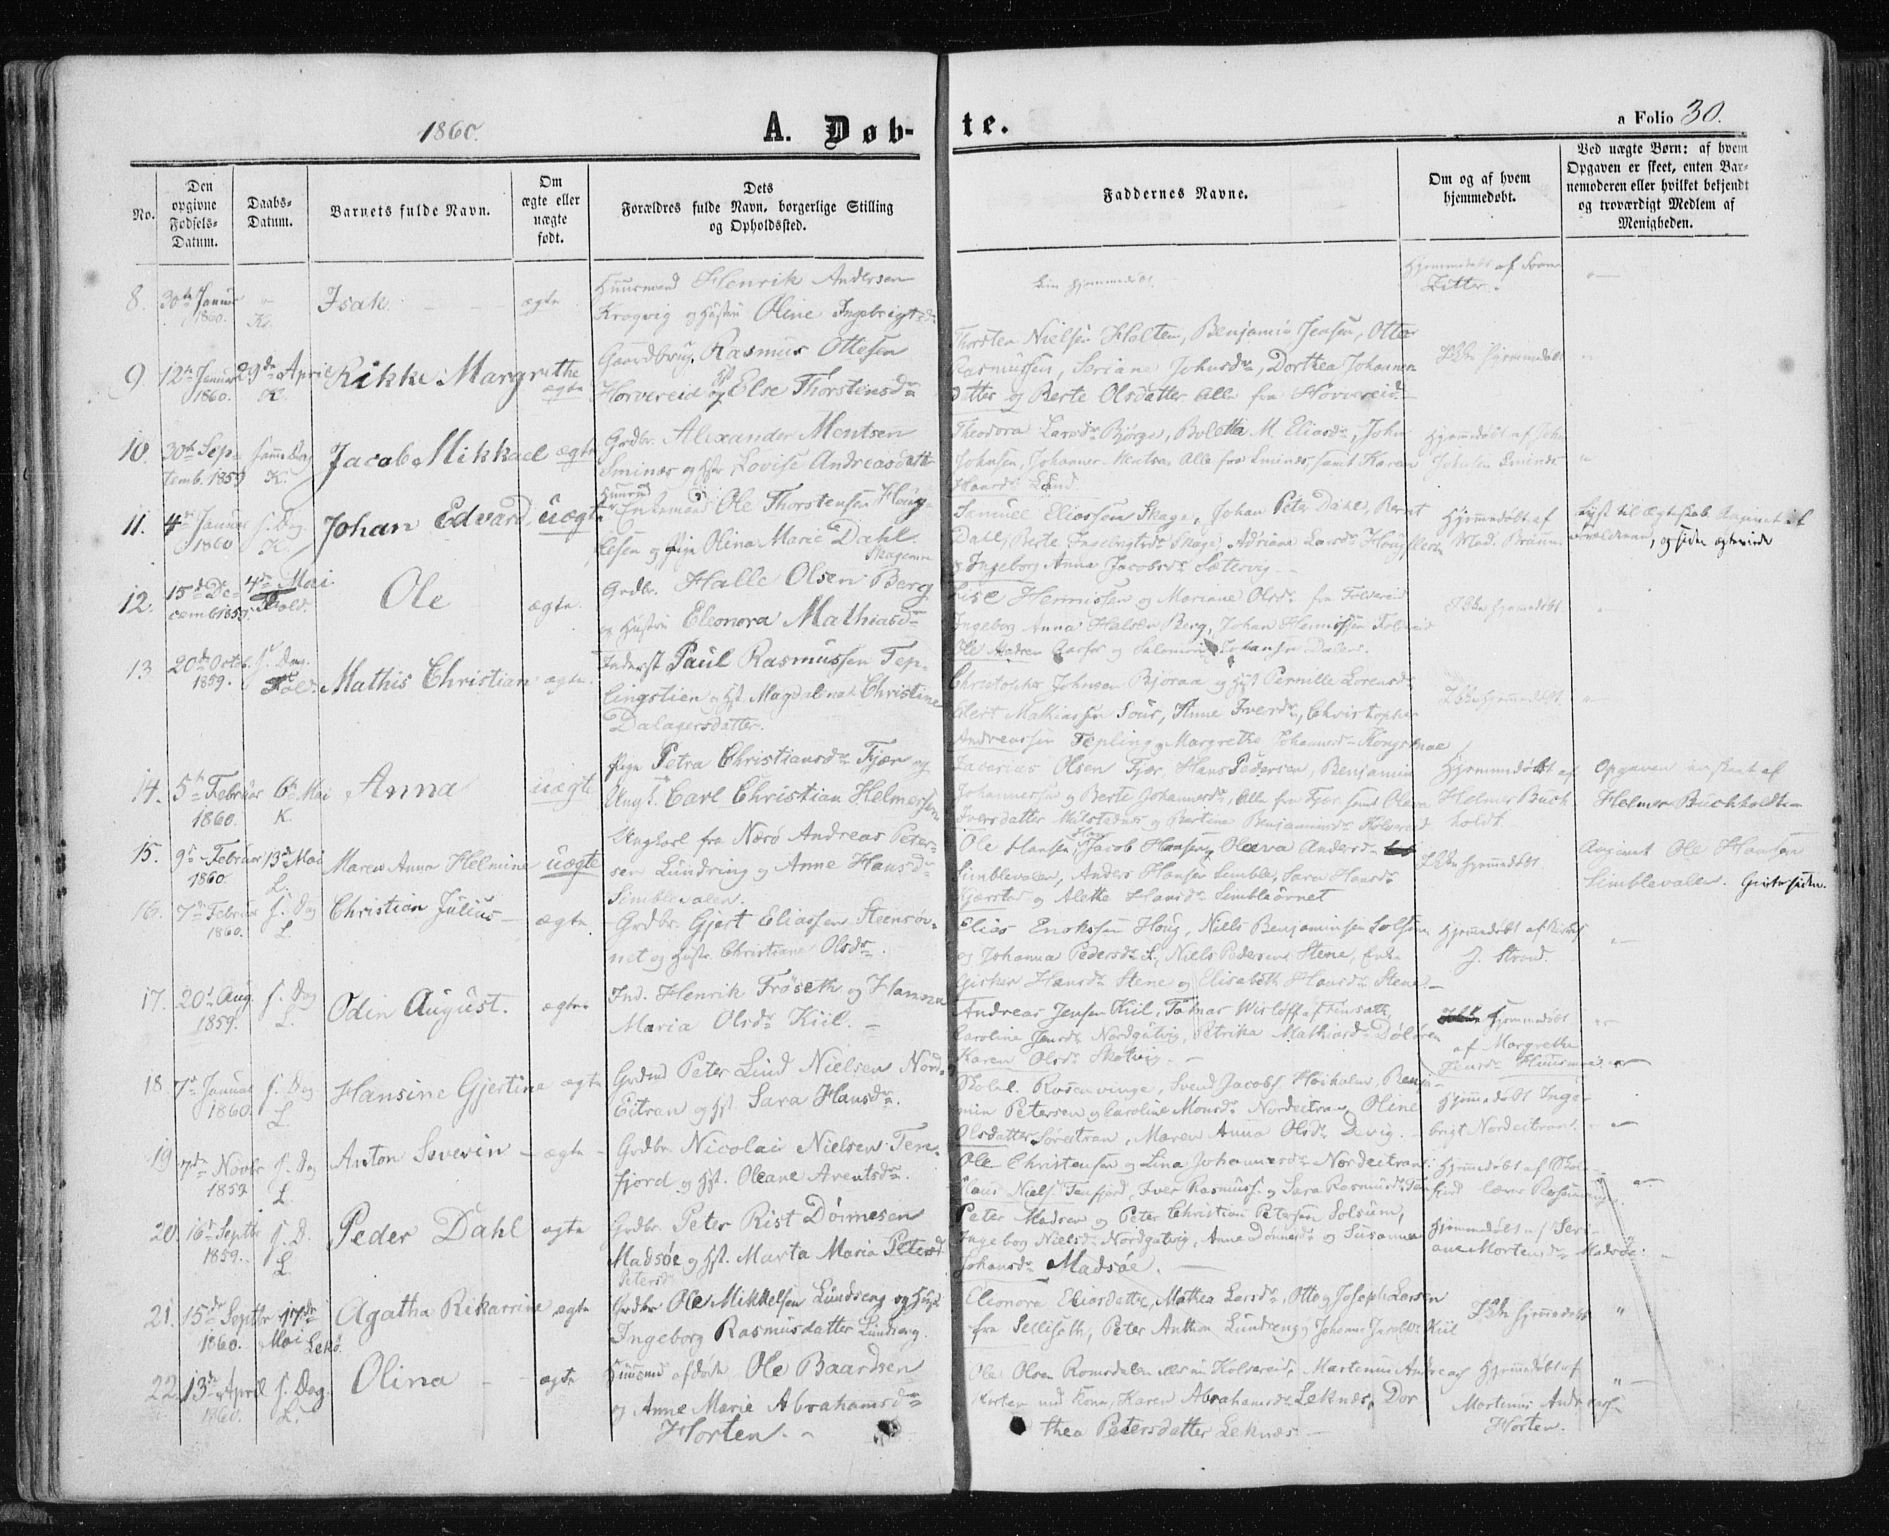 1860.
A. Døb-
te.
a Folio 30.
No.
Den opgivne Fødsels-Datum.
Daabs-Datum.
Barnets fulde Navn.
Om ægte eller uægte født.
Dets Forældres fulde Navn, borgerlige Stilling og Opholdssted.
Faddernes Navne.
Om og af hvem hjemmedøbt.
Ved uægte Børn: af hvem Opgaven er skeet, enten Barnemoderen eller hvilket bekjendt og troværdigt Medlem af Menigheden.
8. 30te Januar 1860. K. Isak ægte
Huusmand Henrik Andersen
Krogvig og Hustru Oline Ingebrigtsdr
Hjemmedøbt af
9. 12te Januar 1860. 29de April K. Rikke Margrethe ægte
Gaardbrug. Rasmus Ottesen
Horvereid og Hst Else Thorstensdr
Thorsten Nielsen Holten, Benjamin Jensen, Otter
Rasmussen, Seriane Johnsdr, Dorthea Johannes
datter og Berte Olsdatter alle fra Horvereid
Ikke hjemmedøbt
10. 30te September 1859 samme Dag K. Jacob Mikkael ægte
Grdbr. Alexander Mentsen
Smines og Hstr Lovise Andreasdatt
Theodora Larsdr Bjørge, Boletta M. Eliasdr, John
Johnsen, Johannes Mentsen alle fra Sminds, samt Karen
Hansdr Lund
Hjemmedøbt af John
Johnsen
11. 4de Januar 1860 s. Dag K. Johan Edvard uægte
Enkemand Ole Thorstensen Houg-
lesen og Pige Olina Marie Dahl
Skagen
Samuel Eliassen Skage, Johan Peter Dahl, Bernt
Dahl, Berte Ingebrigtsdr Skage, Adriane Larsdr Houglesen
og Ingeborg Anna Jacobsdr Sætervig
Hjemmedøbt af
Mad. Bruun
Lyst til Ægteskab Angivet af
Forældrene, og siden ægteviede
12. 15de December 1859. 4de Mai Fold. Ole ægte.
Grdbr. Halle Olsen Berg
og Hustru Eleonora Mathiasdr
Hennissen og Mariane Olsdr fra Folvereid
Ingeborg Anna Halsen Berg, Johan Hennissen Folvereid
Ole Andreas Aarfor og Salomon Johansen
Ikke hjemmedøbt.
13. 20de Octob. 1859. s. Dag. Fold. Mathis Christian ægte.
Inderst Paul Rasmussen Tep-
lingstien og Hst. Magdalena Christine
Dalagersdatter.
Christopher Johnsen Bjøraa og Hst Pernille Lorensdr
Elert Mathiassen Sour, Anne Iversdr, Christopher
Andreassen Tepling og Margrethe Johannesdr Kongsmoe
Ikke hjemmedøbt.
14. 5te Februar 1860. 6te Mai K. Anna uægte
Pige Petra Christiansdr Fjær og
Ungk. Carl Christian Helmersen
Zacarias Olsen Fjær, Hans Pedersen, Benjamin
Johannessen og Berte Johannesdr, alle fra Fjær samt Olava
Iversdatter og Bertine Benjaminsdr Kolvereid
Hjemmedøbt af
Helmer Buch
holdt
Opgaven indskeet af
Helmer Buchholdt
15. 9de Februar 1860. 13de Mai L. Maren Anna Helmine uægte
Ungkarl fra Nærø Andreas Peter-
sen Lundring og Anne Hansdr
Simblevalen.
Ole Hansen, Jacob Hansen, Olava Andersdr
Simblevalen, Anders Hansen Simble, Sara Hansdr
Kjærstad og Alethe Hansdr Simbleørnet
Ikke hjemmedøbt.
Angivet Ole Hansen
Simblevalen. Givtes siden.
16. 7de Februar 1860. s. Dag L. Christian Julius ægte.
Grdbr. Gjert Eliassen Steensør-
net og Hustr. Christiane Olsdr.
Elias Enoksen Houg, Niels Benjaminsen Solsem
og Johanna Pedersdr S., Niels Pedersen Stene, Enke
Hansdr Stene og Elisabeth Hansdr Stene
Hjemmedøbt af
J. Strand.
17. 20de Aug. 1859. s. Dag L. Odin August. ægte
Ind. Henrik Frøseth og Hanna
Maria Olsdr Kiil.
Andreas Jensen Kiil, Tomas Wisløff
Caroline Jensdr Nordgutvig, Petrika Mathiasdr Døløen
Karen Olsdr Skotvig.
Hjemmedøbt
af Margrethe
Jensdr
18. 7de Januar 1860. s. Dag L. Hansine Gjertine ægte
Grdmd Peter Lind Nielsen Nord-
Eitran og Hst. Sara Hansdr.
Skolel. Rosenvinge, Svend Jacobs. Heiholm, Benja-
min Petersen og Caroline Monsdr Nordeitran, Oline
Olsdatter Søreitran, Maren Anna Olsdr Devig.
Hjemmedøbt Inge-
brigt Nordeitran.
19. 7de Novbr 1859 s. Dag L. Anton Severin ægte
Grdbr. Nicolai Nielsen Ten-
fjord og Hst. Oleane Arentsdr.
Ole Christensen og Lina Johannesdr Nordeitran
Claus Niels. Tenfjord, Iver Rasmuss. og Sara Rasmusdr Tenfjord
Hjemmedøbt af Skole-
lærer Rosenvinge
20. 16de Septbr 1859. s. D. L. Peder Dahl ægte
Grdbr. Peter Rist Dønnesen
Madsøe og Hst. Marta Maria Petersd
Petersd
Peter Madsen og Peter Christian Petersen Solsum,
Ingeborg Nielsdr Nordgutvig, Anne Dønnesdr og Susanna
Johansdr Madsøe.
Hjemmedøbt af Seri-
ane Mortensdr Madsøe.
21. 15de Septbr 1860. 17de Mai Lekø. Agatha Rikarrine ægte
Grdbr. Ole Mikkelsen Lundseng og Hust
Ingeborg Rasmusdatter Lundseng.
Elionora Eliasdatter, Mathea Larsdr, Otto og Joseph Larsen
fra Sellisæth, Peter Anthon Lundseng og Johannes Jacobs. Kiil
Ikke hjemmedøbt
22. 13de April 1860. s. Dag. L. Olina ægte
Huusmd afdøde Ole Baardsen
og Anne Marie Abrahamsdr
Horten.
Ole Olsen Romsdalen Kolvereid, Martinus Andreas
Horten med Kone, Karen Abrahamsdr Leknæs, Dor
thea Petersdatter Leknæs
Hjemmedøbt af
Martinus Andreas
Horten.